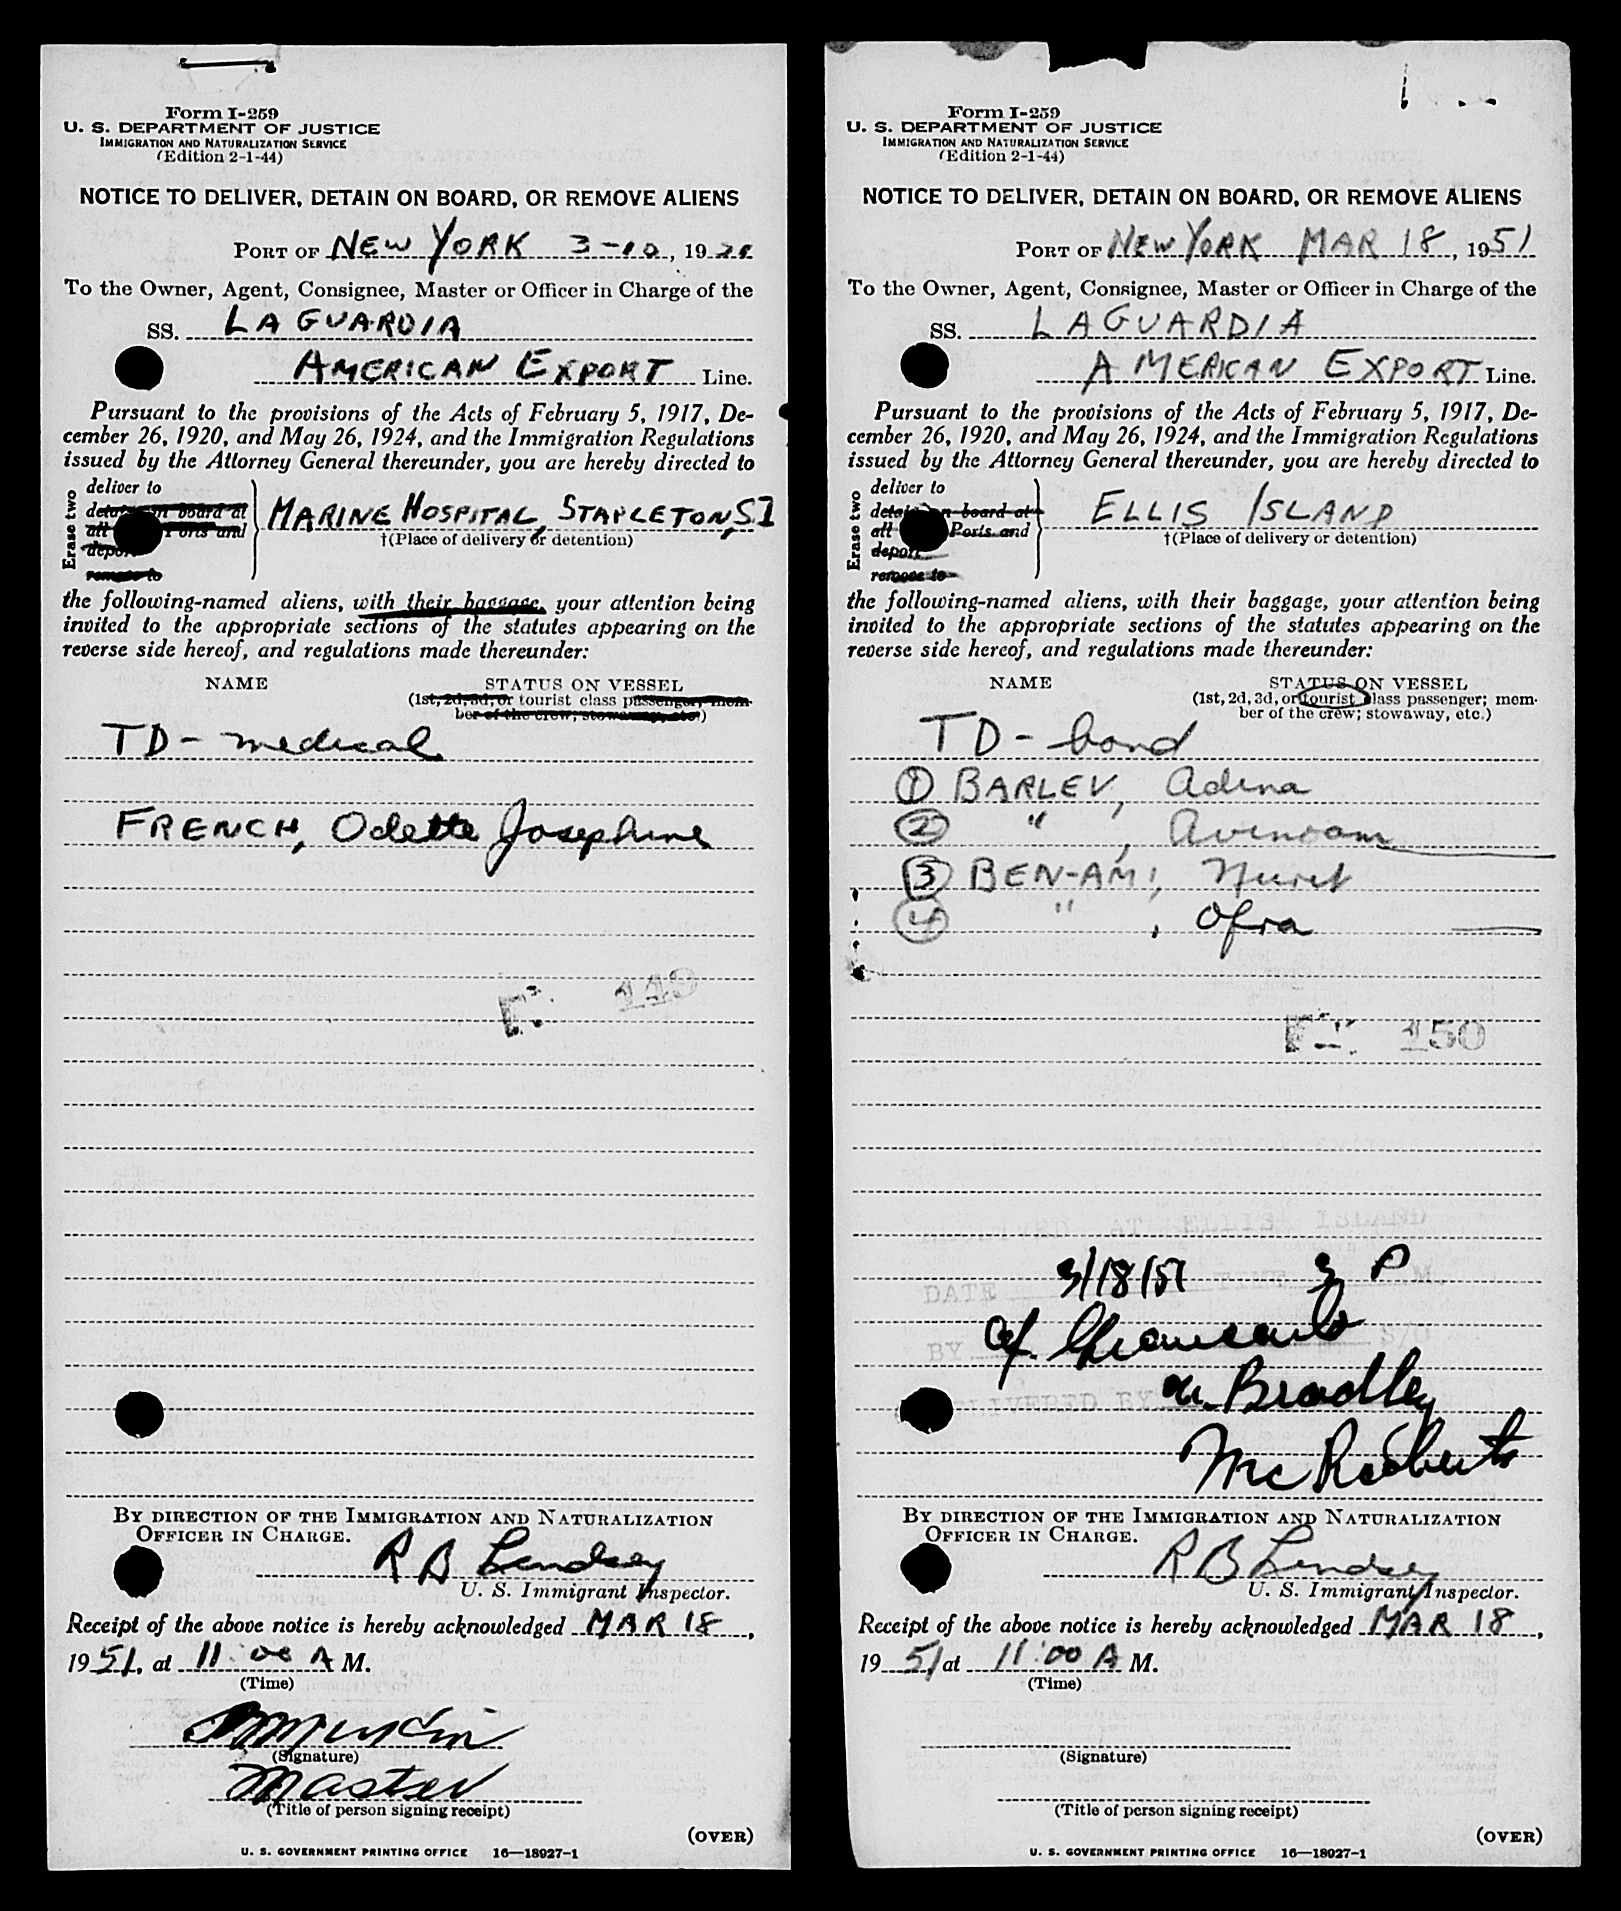 Form I-259
U. S. DEPARTMENT OF JUSTICE
IMMIGRATION AND NATURALIZATION SERVICE
(Edition 2-1-44)
NOTICE TO DELIVER, DETAIN ON BOARD, OR REMOVE ALIENS
PORT OF NEW YORK 3-10, 19
To the Owner, Agent, Consignee, Master or Officer in Charge of the
SS. LA GUARDIA
AMERICAN EXPORT Line.
Pursuant to the provisions of the Acts of February 5, 1917, De-
cember 26, 1920, and May 26, 1924, and the Immigration Regulations
issued by the Attorney General thereunder, you are hereby directed to
Erase two
deliver to
on board at
all Ports and
deport
remove to
MARINE HOSPITAL, STAPLETON, SI
†(Place of delivery or detention)
the following-named aliens, with their baggage, your attention being
invited to the appropriate sections of the statutes appearing on the
reverse side hereof, and regulations made thereunder:
NAME STATUS ON VESSEL
(1st, 2d, 3d, or tourist class passenger; mem-
ber of the crew; stowaway, etc.)
TD - medical
FRENCH, Odette Josephine
149
BY DIRECTION OF THE IMMIGRATION AND NATURALIZATION
OFFICER IN CHARGE.
R B Lindsey
U. S. Immigrant Inspector.
Receipt of the above notice is hereby acknowledged MAR 18,
1951, at 11:00 A M.
(Time)
(Signature)
Master
(Title of person signing receipt)
(OVER)
U. S. GOVERNMENT PRINTING OFFICE 16—18927-1
Form I-259
U. S. DEPARTMENT OF JUSTICE
IMMIGRATION AND NATURALIZATION SERVICE
(Edition 2-1-44)
NOTICE TO DELIVER, DETAIN ON BOARD, OR REMOVE ALIENS
PORT OF NEW YORK MAR 18, 1951
To the Owner, Agent, Consignee, Master or Officer in Charge of the
SS. LAGUARDIA
AMERICAN EXPORT Line.
Pursuant to the provisions of the Acts of February 5, 1917, De-
cember 26, 1920, and May 26, 1924, and the Immigration Regulations
issued by the Attorney General thereunder, you are hereby directed to
Erase two
deliver to
on board at
all Ports and
deport
remove to
ELLIS ISLAND
†(Place of delivery or detention)
the following-named aliens, with their baggage, your attention being
invited to the appropriate sections of the statutes appearing on the
reverse side hereof, and regulations made thereunder:
NAME STATUS ON VESSEL
(1st, 2d, 3d, or tourist class passenger; mem-
ber of the crew; stowaway, etc.)
TD - bond
① BARLEV, Adina
② " , Avinoam
③ BEN-AMI, Nurit
④ " , Ofra
150
AT ELLIS ISLAND
DATE 3/18/51 TIME 3 P M.
BY S/O
DELIVERED BY Bradley
McRoberts
BY DIRECTION OF THE IMMIGRATION AND NATURALIZATION
OFFICER IN CHARGE.
R B Lindsey
U. S. Immigrant Inspector.
Receipt of the above notice is hereby acknowledged MAR 18,
1951 at 11:00 A M.
(Time)
(Signature)
(Title of person signing receipt)
(OVER)
U. S. GOVERNMENT PRINTING OFFICE 16—18927-1